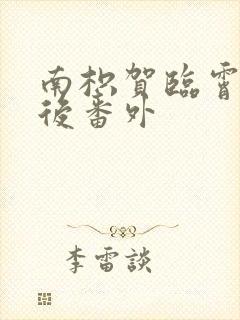 南枳賀臨霄
後番外
李雷談